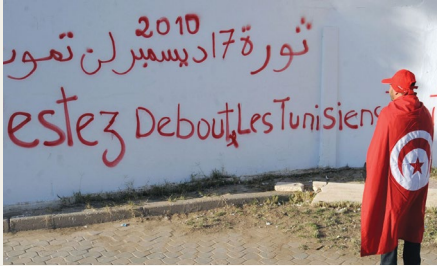 2010
ثورة 17 ديسمبر لن تموت
estez Debout Les Tunisiens